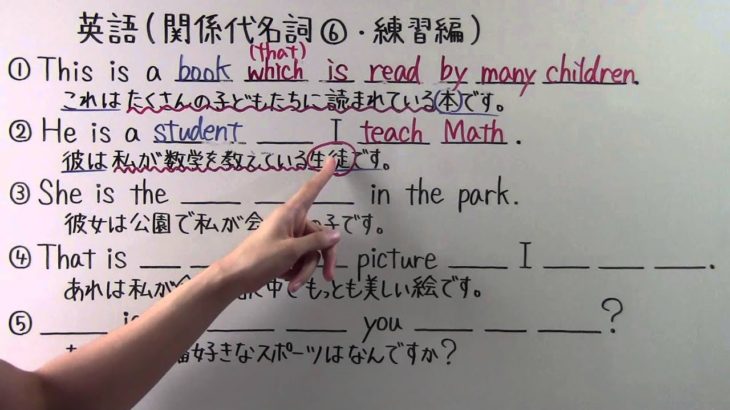 英語(関係代名詞⑥・練習編)
(that)
① This is a book which is read by many children.
これはたくさんの子どもたちに読まれている(本)です。
② He is a student ___ I teach Math.
彼は私が数学を教えている生徒です。
③ She is the ___ ___ in the park.
彼女は公園で私が会 の子です。
④ That is ___ picture ___ I ___ ___ ___.
あれは私が 中でもっとも美しい絵です。
⑤ ___ you ___ ___ ___?
好きなスポーツはなんですか?